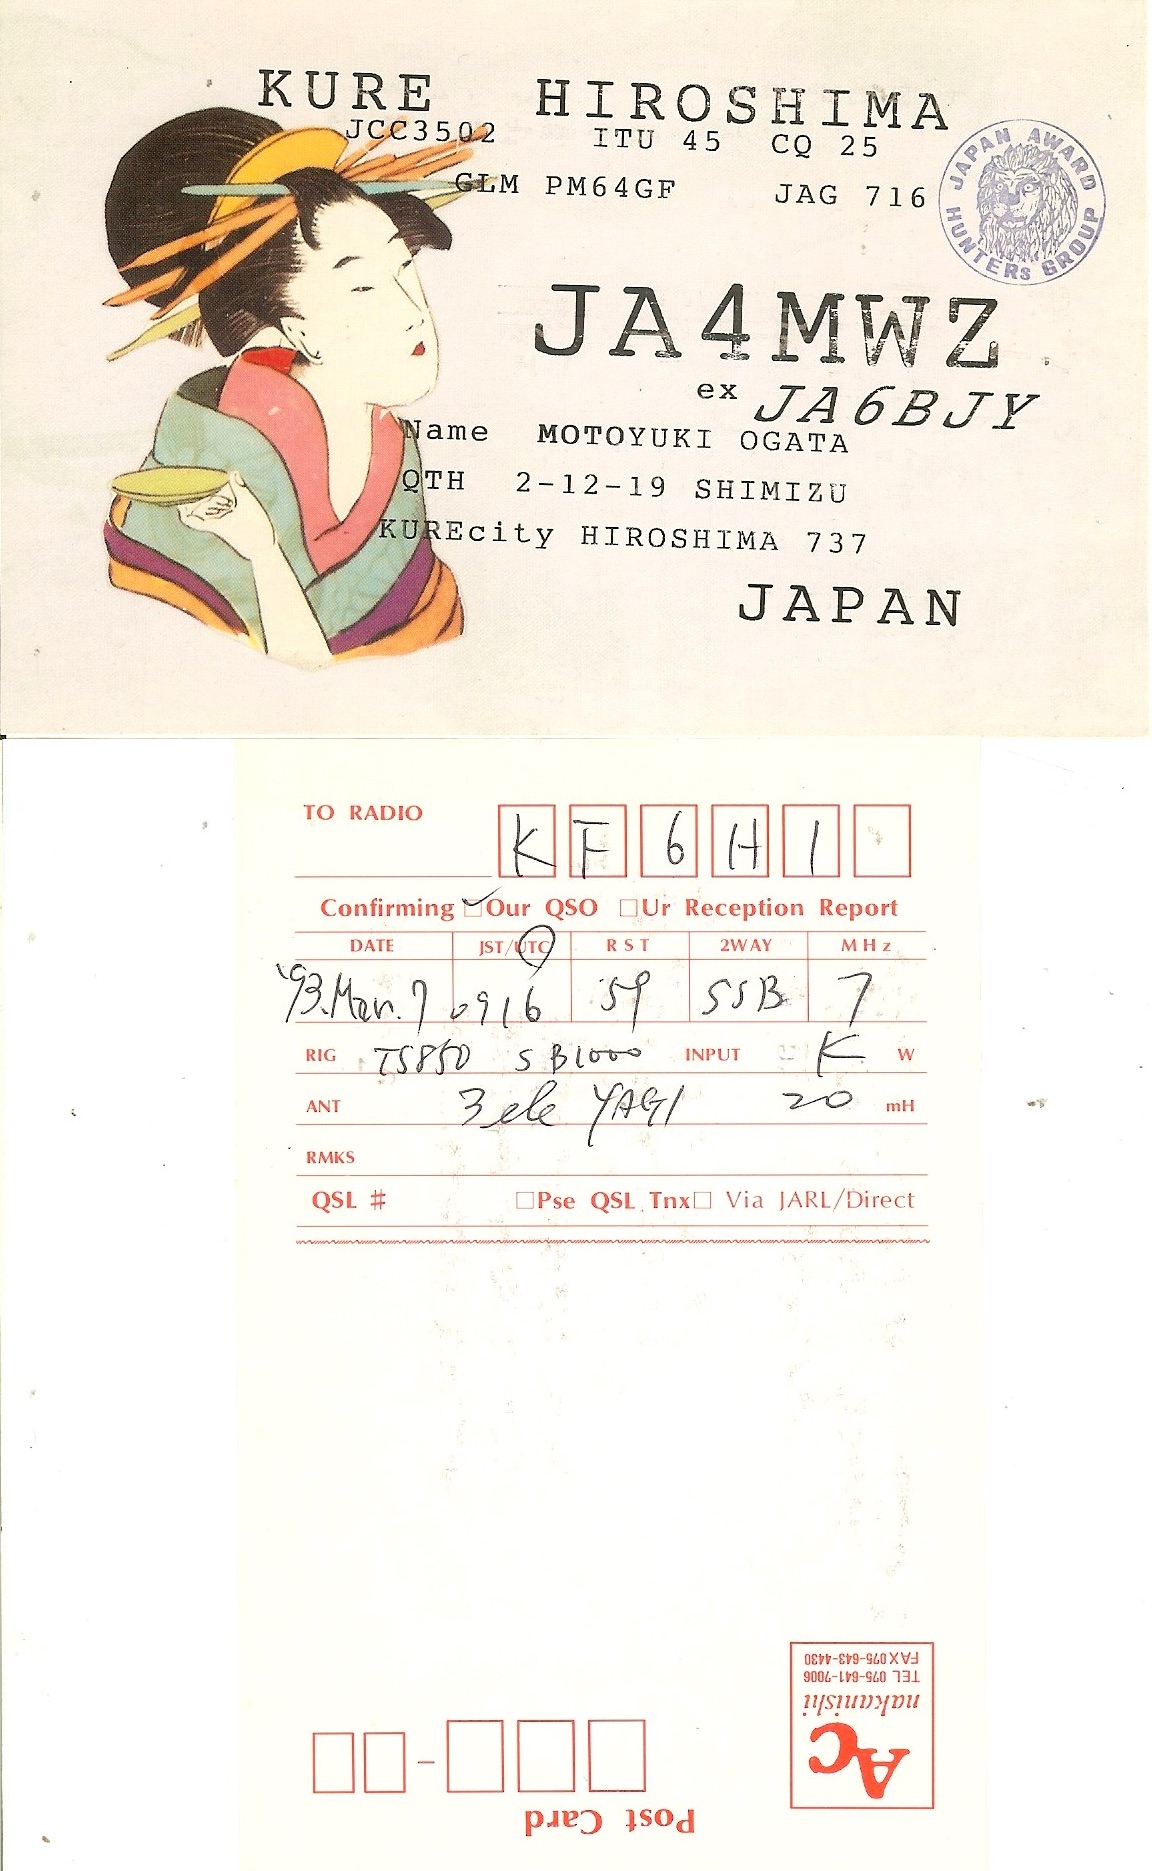 KURE HIROSHIMA
JCC3502 ITU 45 CQ 25
GLM PM64GF JAG 716
JAPAN AWARD HUNTERS GROUP
JA4MWZ
ex JA6BJY
Name MOTOYUKI OGATA
QTH 2-12-19 SHIMIZU
KUREcity HIROSHIMA 737
JAPAN
TO RADIO KF6HI
Confirming ☑Our QSO □Ur Reception Report
DATE JST/UTC RST 2WAY MHz
'93.Mar.7 0916 59 SSB 7
RIG TS850 SB1000 INPUT K W
ANT 3ele YAGI 20 mH
RMKS
QSL # □Pse QSL Tnx□ Via JARL/Direct
Post Card
AC
nakanishi
TEL 075-641-7006
FAX 075-643-4430